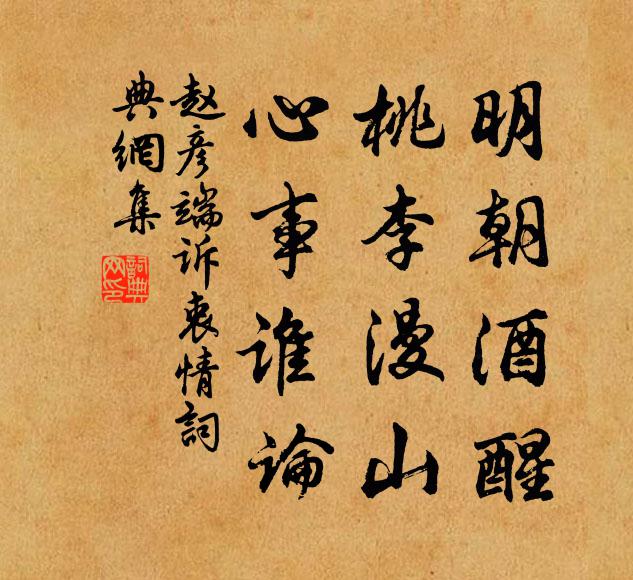 明朝酒醒
桃李漫山
心事谁论
赵彦端诉衷情詞
典網集
詞典網印